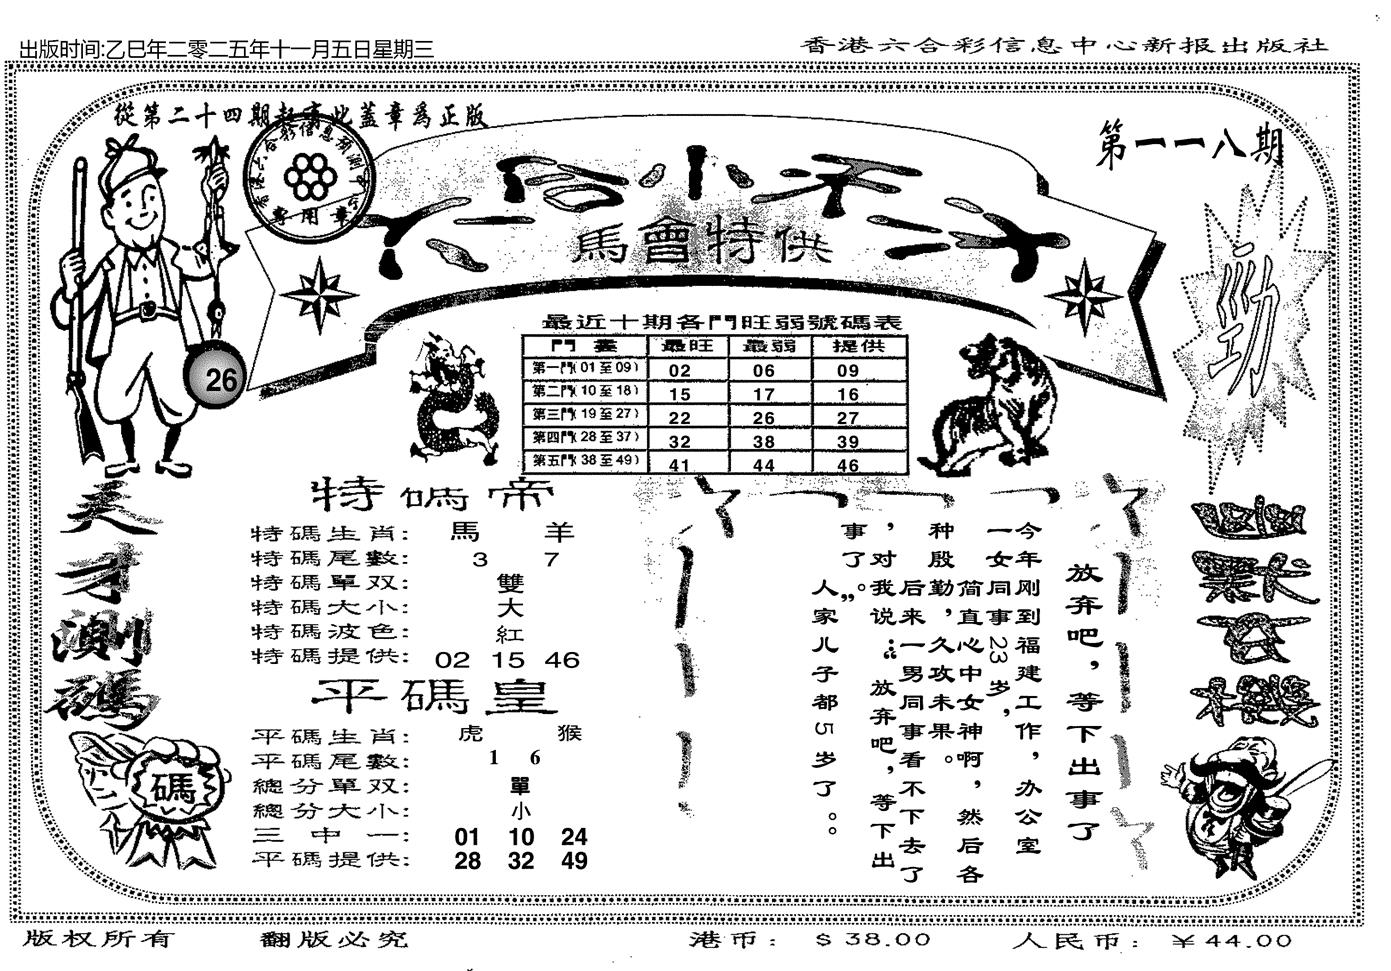 出版时间:乙巳年二零二五年十一月五日星期三
香港六合彩信息中心新报出版社
從第二十四期起有此蓋章爲正版
專用章
第一一八期
六合小天才
馬會特供
勁
26
最近十期各門旺弱號碼表
門 最旺 最弱 提供
第一門(01至09) 02 06 09
第二門(10至18) 15 17 16
第三門(19至27) 22 26 27
第四門(28至37) 32 38 39
第五門(38至49) 41 44 46
天才測碼
碼
特碼帝
特碼生肖: 馬 羊
特碼尾數: 3 7
特碼單双: 雙
特碼大小: 大
特碼波色: 紅
特碼提供: 02 15 46
平碼皇
平碼生肖: 虎 猴
平碼尾數: 1 6
總分單双: 單
總分大小: 小
三中一: 01 10 24
平碼提供: 28 32 49
放弃吧，等下出事了
今年刚到福建工作，办公室
一女同事23岁，
简直心中女神啊，然后各
种殷勤，久攻未果。
后来一男同事看不下去了
，对我说：“放弃吧，等下出
事了。”
人家儿子都5岁了。。
版权所有 翻版必究
港币: $38.00
人民币: ¥44.00